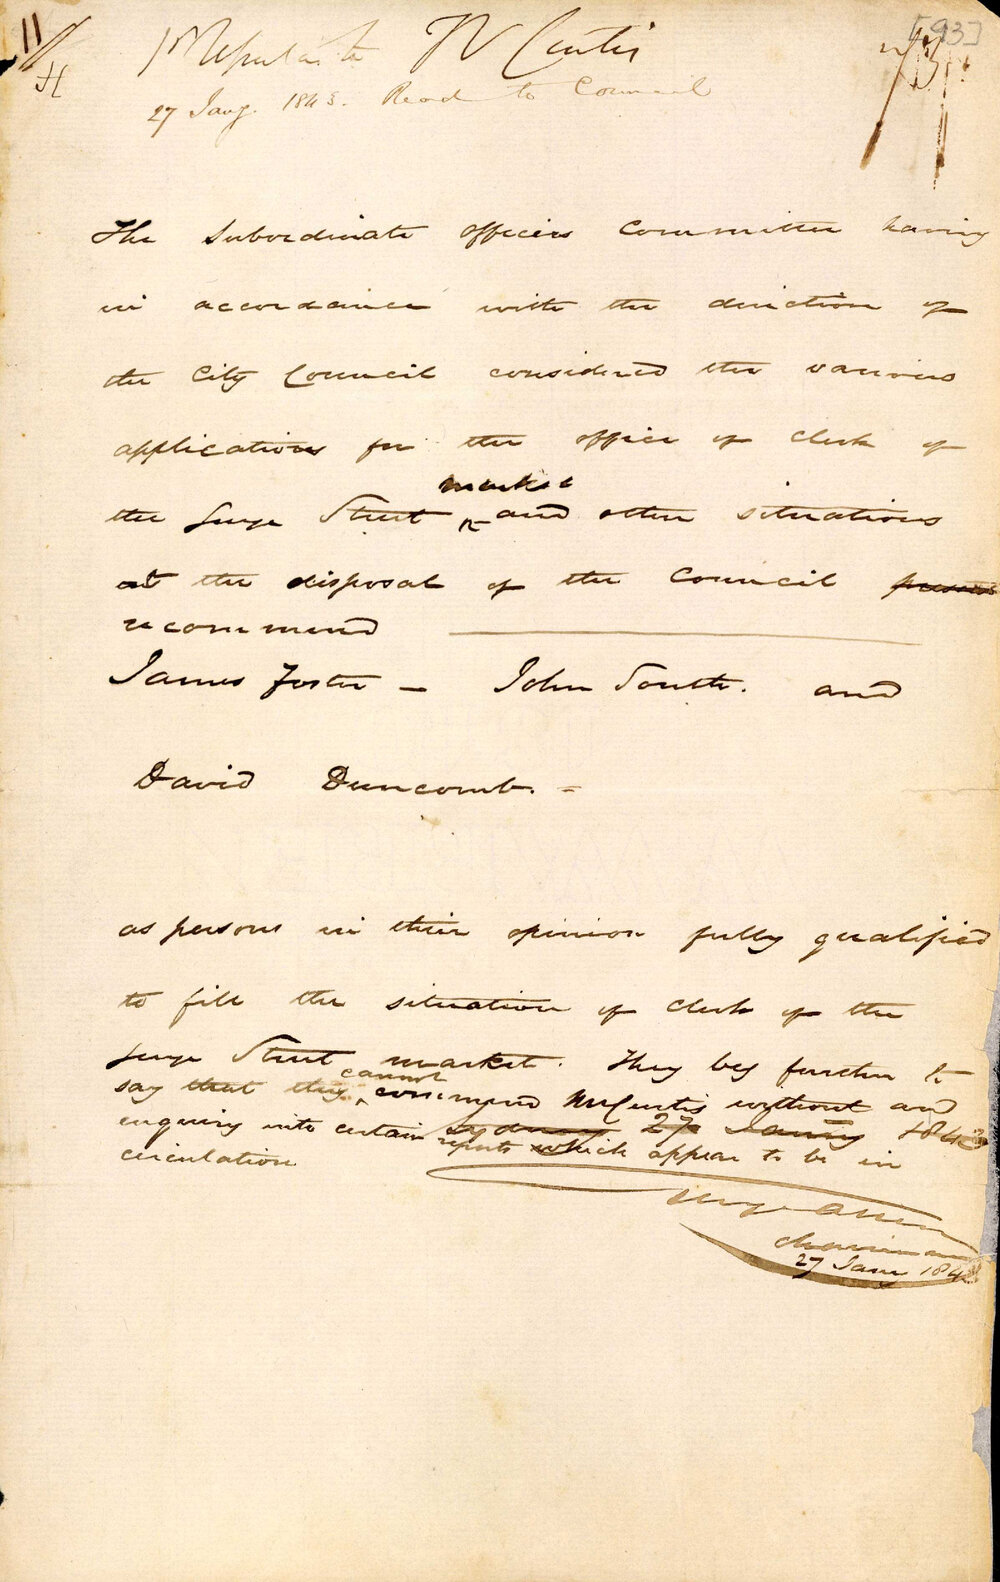 11
H
[93]
W Curtis
27 Jany. 1843. Read to Council
The Subordinate officers Committee having
in accordance with the direction of
the City Council considered the various
applications for the office of Clerk of
market
the George Street ^ and other situations
at the disposal of the Council
recommend
James Foster – John South. and
David Duncomb. –
as persons in their opinion fully qualified
to fill the situation of Clerk of the
George Street market. They beg further to
cannot
say that they ^ recommend Mr Curtis without and
Sydney 27 Jany 1843
enquiry into certain reports which appear to be in
circulation
Chairman
27 Jany 1843